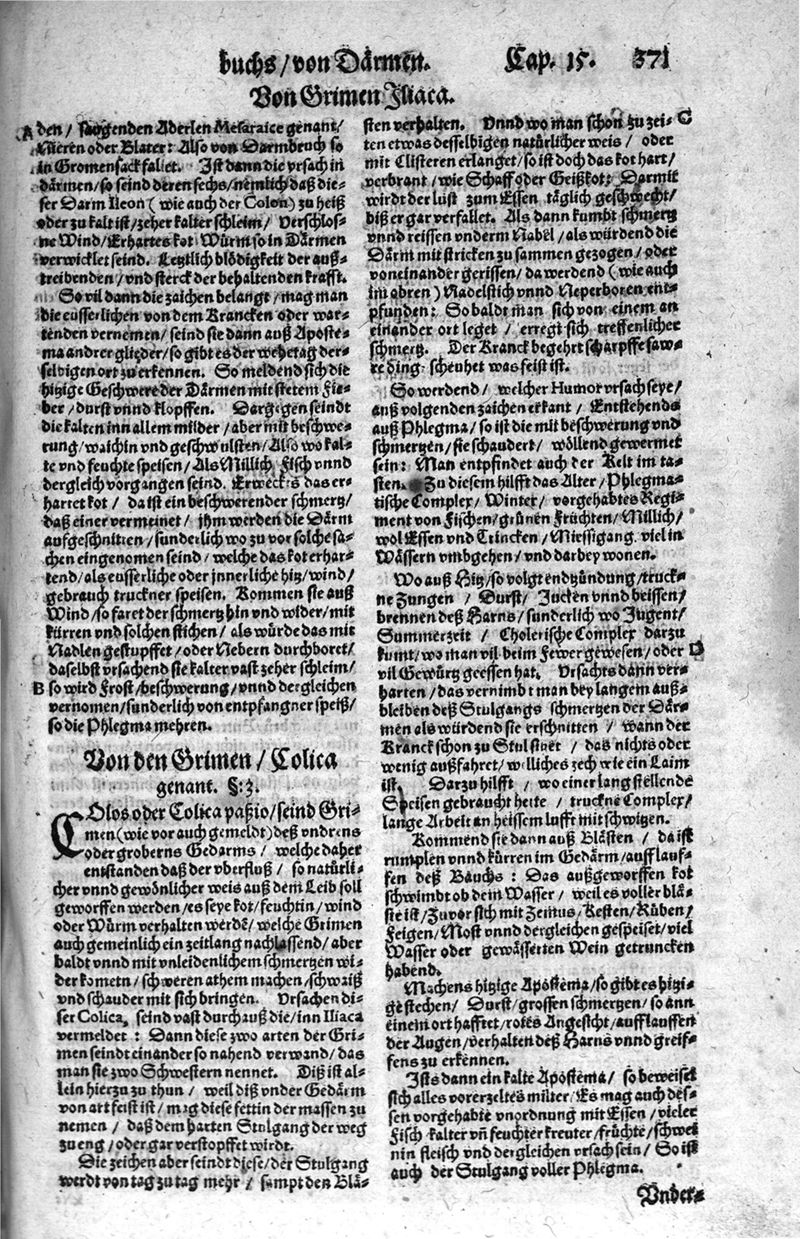 buchs / von Därmen. Cap. 15. 371
Von Grimen Iliaca.
A den / saugenden Aderlen Mesaraice genant /
Nieren oder Blater: Also von Darmbruch so
in Gromensack fallet. Ist dann die vrsach in
därmen / so seind deren sechs / nemlich daß die-
ser Darm Ileon ( wie auch der Colon) zu heiß
oder zu kalt ist / zeher kalter schleim / Verschlos-
ne Wind / Erhartes kot Würm so in Därmen
verwicklet seind. Letztlich blödigkeit der auß-
treibenden / vnd sterck der behaltenden krafft.
So vil dann die zaichen belangt / mag man
die eusserlichen von dem Krancken oder war-
tenden vernemen / seind sie dann auß Aposte-
ma andrer glider / so gibt es der wehetag der-
selbigen ort zu erkennen. So meldend sich die
hitzige Geschwere der Därmen mit stetem Fie-
ber / durst vnnd klopffen. Dargegen seindt
die kalten inn allem milder / aber mit beschwe-
rung / waichin vnd geschwulsten / Also wo kal-
te vnd feuchte speisen / Als Millich, Fisch vnnd
dergleich vorgangen seind. Erweck es das er-
hartet kot / da ist ein beschwerender schmertz /
daß einer vermeinet / jhm werden die Därm
aufgeschnitten / sunderlich wo zu vor solche sa-
chen eingenomen seind / welche das kot erhar-
tend / als eusserliche oder innerliche hitz / wind /
gebrauch truckner speisen. Kommen sie auß
Wind / so faret der schmertz hin vnd wider / mit
kürren vnd solchen stichen / als würde das mit
Nadlen gestupffet / oder Nebern durchboret /
daselbst vrsachend sie kalter vast zeher schleim /
B so wird Frost / beschwerung / vnnd dergleichen
vernomen / sunderlich von entpfangner speiß /
so die Phlegma mehren.
Von den Grimen / Colica
genant. §: 3.
COlos oder Colica paßio / seind Gri-
men (wie vor auch gemeldt) deß vndrens
oder groberns Gedarms / welche daher
entstanden daß der vberfluß / so natürli-
cher vnnd gewönlicher weis auß dem Leib soll
geworffen werden / es seye kot / feuchtin / wind
oder Würm verhalten werdē / welche Grimen
auch gemeinlich ein zeitlang nachlassend / aber
baldt vnnd mit vnleidenlichem schmertzen wi-
der kometn / schweren athem machen / schwaiß
vnd schauder mit sich bringen. Vrsachen di-
ser Colica, seind vast durchauß die / inn Iliaca
vermeldet : Dann diese zwo arten der Gri-
men seindt einander so nahend verwand / das
man sie zwo Schwestern nennet. Diß ist al-
lein hierzu zu thun / weil diß vnder Gedärm
von art feist ist / mag diese fettin der massen zu
nemen / daß dem harten Stulgang der weg
zu eng / oder gar verstopffet wirdt.
Die zeichen aber seindt diese / der Stulgang
werdt von tag zu tag mehr / sampt den Blä-
sten verhalten. Vnnd wo man schon zu zei- C
ten etwas desselbigen natürlicher weis / oder
mit Clisteren erlanget / so ist doch das kot hart /
verbrant / wie Schaff oder Geißkot: Darmit
wirdt der lust zum Essen täglich geschwecht /
biß er gar verfallet. Als dann kumbt schmertz
vnnd reissen vnderm Nabel / als würdend die
Därm mit stricken zu sammen gezogen / oder
voneinander gerissen / da werdend ( wie auch
im obren ) Nadelstich vnnd Neperboren ent-
pfunden: So baldt man sich von einem an
einander ort leget / erregt sich treffenlicher
schmertz. Der Kranck begehrt scharpffe saw-
re ding: scheuhet was feist ist.
So werdend / welcher Humor vrsach seye /
auß volgenden zaichen erkant / Entstehends
auß Phlegma / so ist die mit beschwerung vnd
schmertzen / sie schaudert / wöllend gewermet
sein: Man entpfindet auch der Kelt im ta-
sten. Zu diesem hilfft das Alter / Phlegma-
tische Complex / Winter / vorgehabtes Regi-
ment von Fischen / grünen Früchten / Millich /
wol Essen vnd Trincken / Miessigang, viel in
Wässern vmbgehen / vnd darbey wonen.
Wo auß Hitz / so volgt endzündung / truck-
ne Zungen / Durst / Jucken vnnd beissen /
brennen deß Harns / sunderlich wo Jugent /
Summerzeit / Cholerische Complex darzu
kumt / wo man vil beim Fewer gewesen / oder D
vil Gewürtz geessen hat. Vrsachts dann ver-
harten / das vernimbt man bey langem auß-
bleiben deß Stulgangs schmertzen der Där-
men als würdend sie erschnitten / wann der
Kranck schon zu Stul sitzet / das nichts oder
wenig außfahret / welliches zech wie ein Laim
ist. Darzu hilfft / wo einer lang stellende
Speisen gebraucht hette / truckne Complex /
lange Arbeit an heissem lufft mit schwitzen.
Kommend sie dann auß Blästen / da ist
rumplen vnnd kürren im Gedärm / aufflauf-
fen deß Bauchs : Das außgeworffen kot
schwimbt ob dem Wasser / weil es voller blä-
ste ist / Zuvor sich mit Zemus / Kesten / Rüben /
Feigen / Most vnnd dergleichen gespeiset / viel
Wasser oder gewässerten Wein getruncken
habend.
Machens hitzige Apostema / so gibt es hitzi-
ge stechen / Durst / grossen schmertzen / so ann
einem ort hafftet / rotes Angesicht / aufflauffen
der Augen / verhalten deß Harns vnnd greif-
fens zu erkennen.
Ists dann ein kalte Apostema / so beweiset
sich alles vorerzeltes milter / Es mag auch des-
sen vorgehabte vnordnung mit Essen / vieler
Fisch kalter vñ feuchter kreuter / früchte / schwei
nin fleisch vnd dergleichen vrsach sein / So ist
auch der Stulgang voller Phlegma.
Vnder-